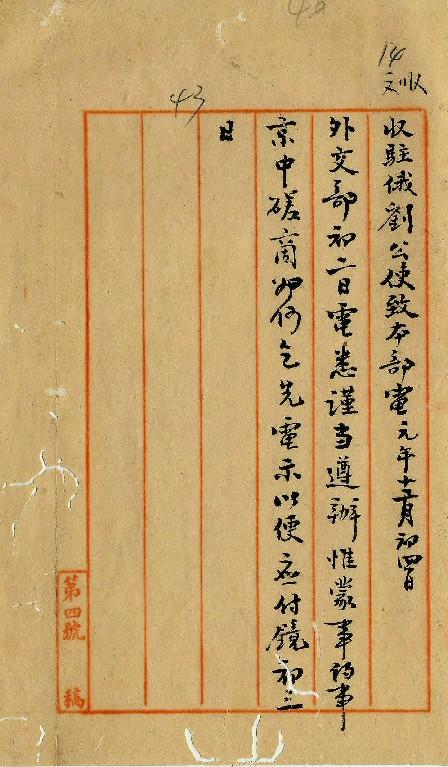 收駐俄劉公使致本部電元年十二月初四日
外交部初二日電悉謹當遵辦惟蒙事約事
京中磋商如何乞先電示以便應付鏡初三
日
第四號 稿
14
文收
43